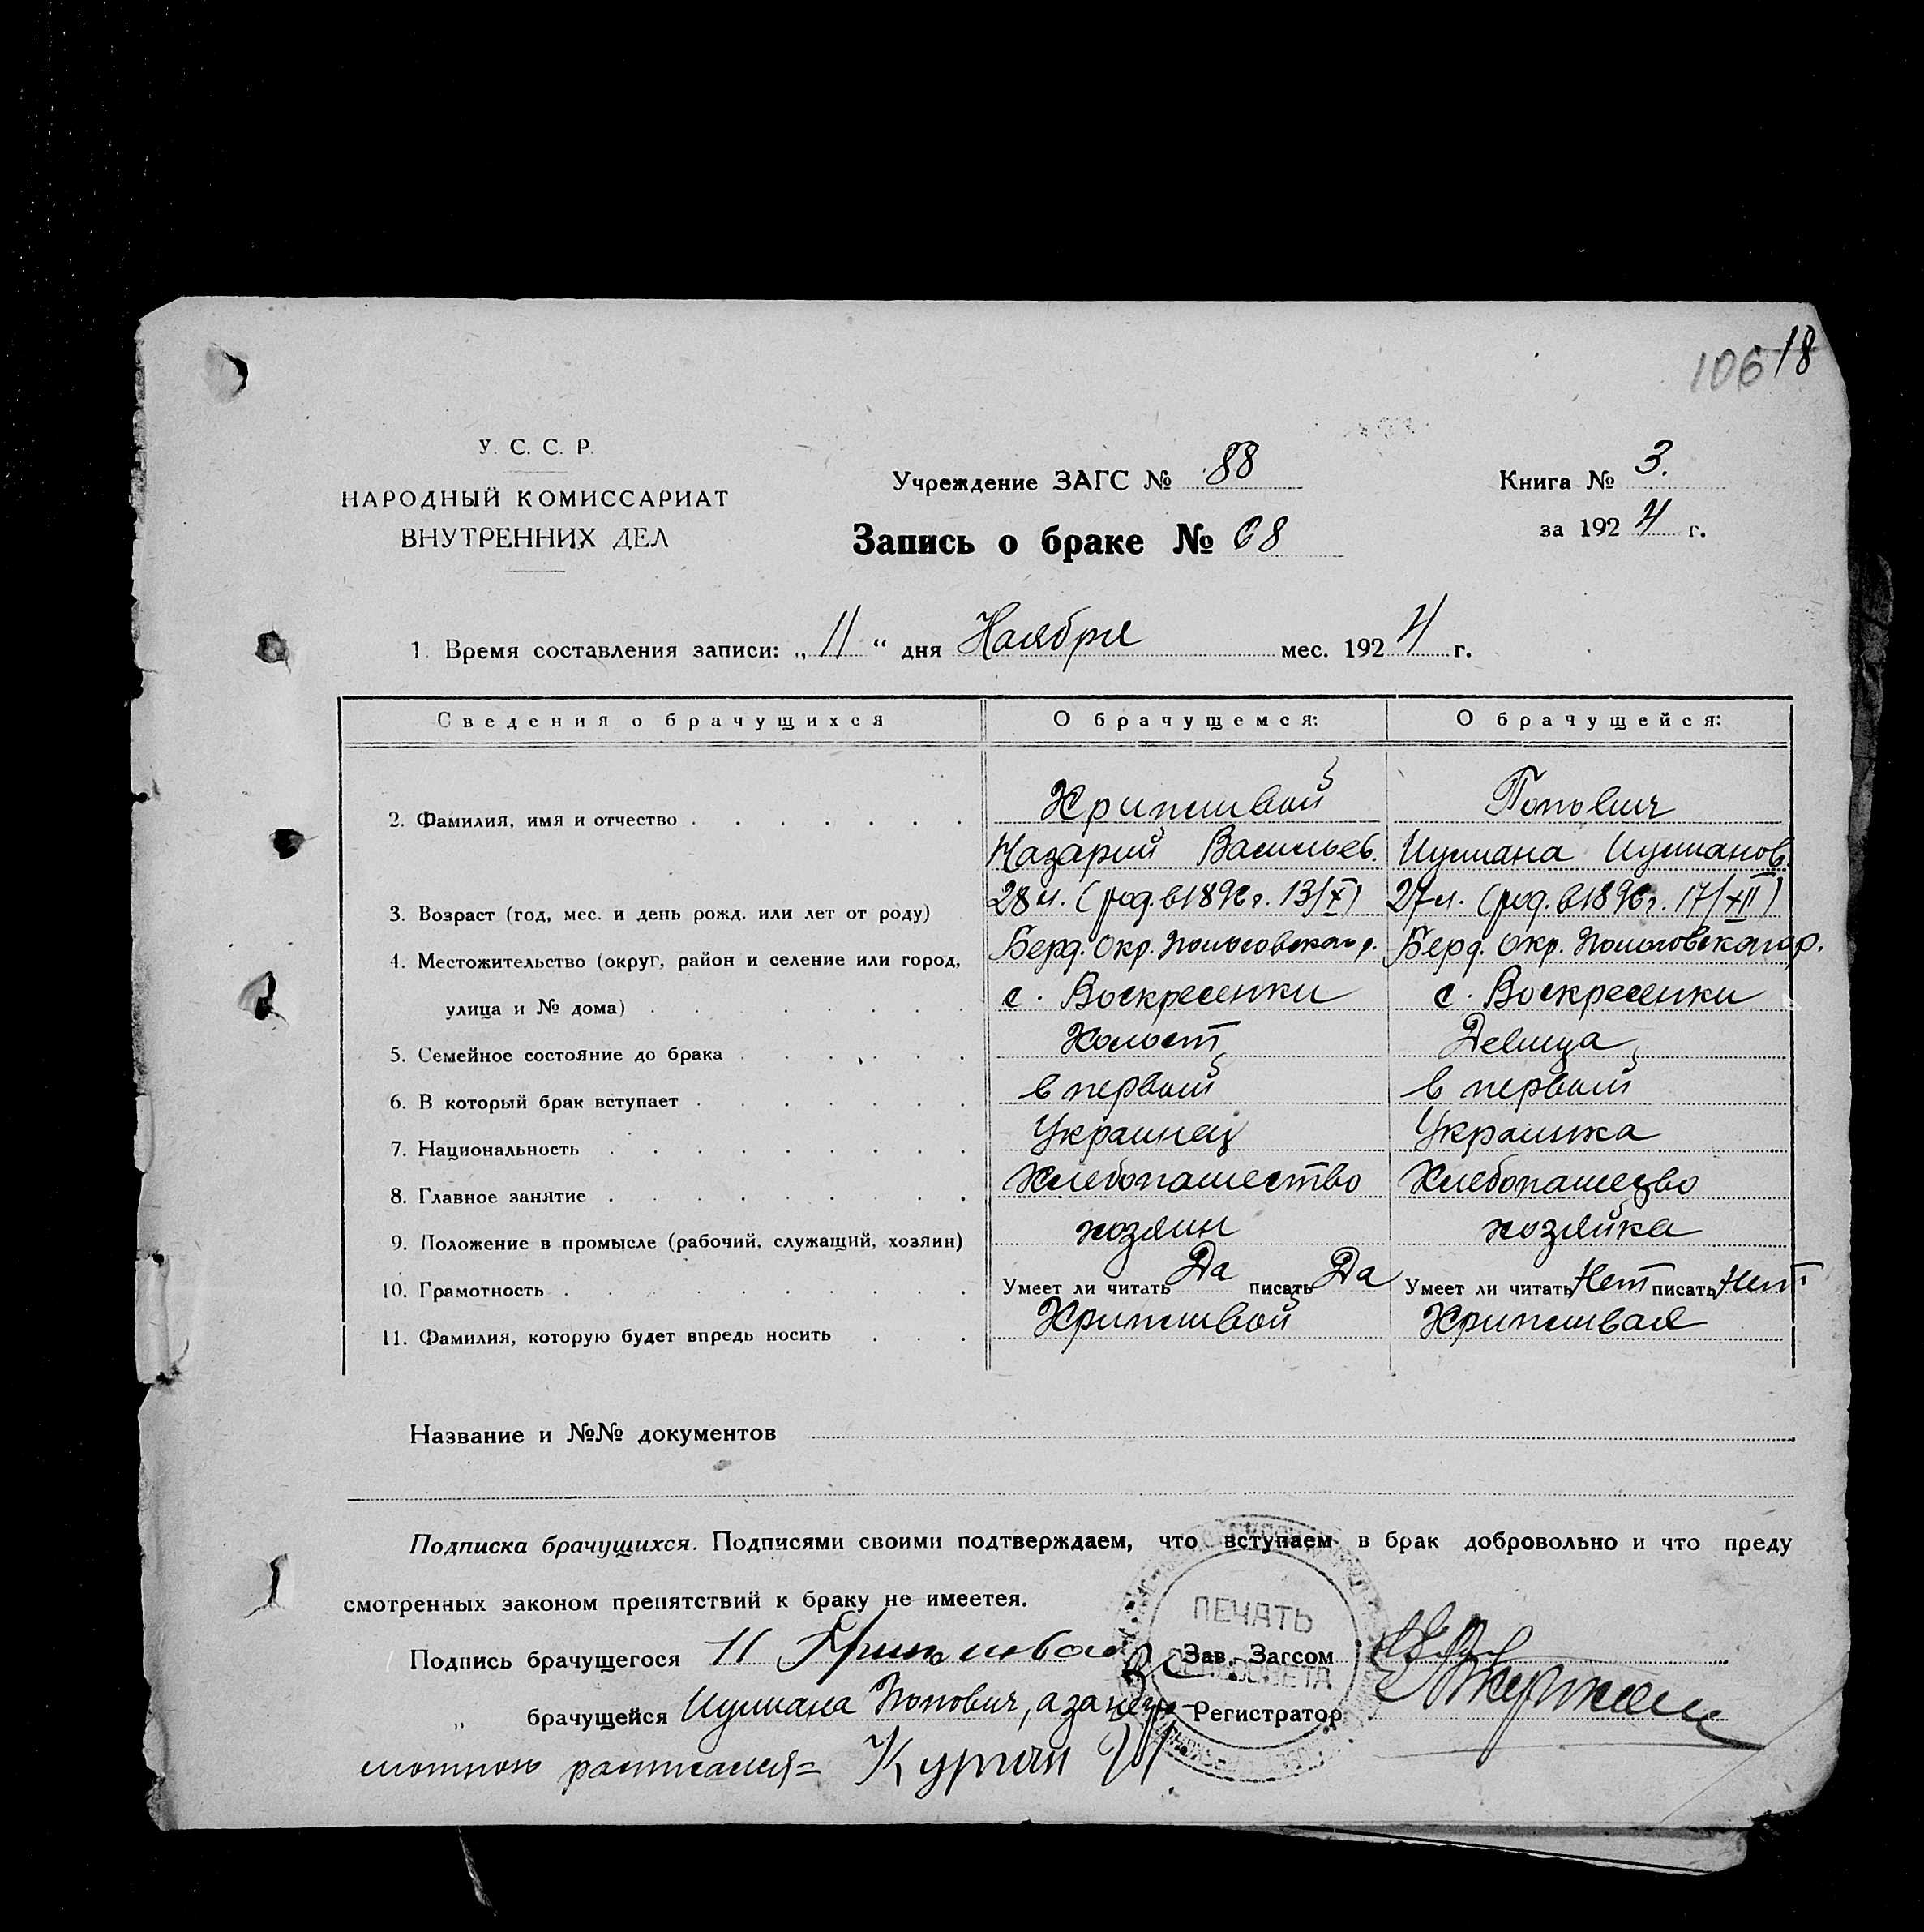 106 18
У. С. С. Р.
НАРОДНЫЙ КОМИССАРИАТ
ВНУТРЕННИХ ДЕЛ
Учреждение ЗАГС № 88
Запись о браке № 68
Книга № 3.
за 1924 г.
1. Время составления записи: „11“ дня Ноября мес. 1924 г.
Сведения о брачущихся О брачущемся: О брачущейся:
2. Фамилия, имя и отчество Попович
Назарий Васильев. Иулиана Иулианов.
3. Возраст (год, мес. и день рожд. или лет от роду) 28 л. (род. в 1896 г. 13/X) 27 л. (род. в 1896 г. 17/XII)
4. Местожительство (округ, район и селение или город, Берд. Окр. Пологовского р. Берд. Окр. Пологовского р.
улица и № дома) с. Воскресенки с. Воскресенки
5. Семейное состояние до брака Холост Девица
6. В который брак вступает в первый в первый
7. Национальность Украинец Украинка
8. Главное занятие Хлебопашество Хлебопашество
9. Положение в промысле (рабочий, служащий, хозяин) хозяин хозяйка
10. Грамотность Умеет ли читать Да писать Да Умеет ли читать Нет писать Нет.
11. Фамилия, которую будет впредь носить
Название и №№ документов
Подписка брачущихся. Подписями своими подтверждаем, что вступаем в брак добровольно и что преду
смотренных законом препятствий к браку не имеется.
Подпись брачущегося Н Зав. Загсом
„ брачущейся Иулиана Попович, а за негра- Регистратор
мотную расписался=
ПЕЧАТЬ